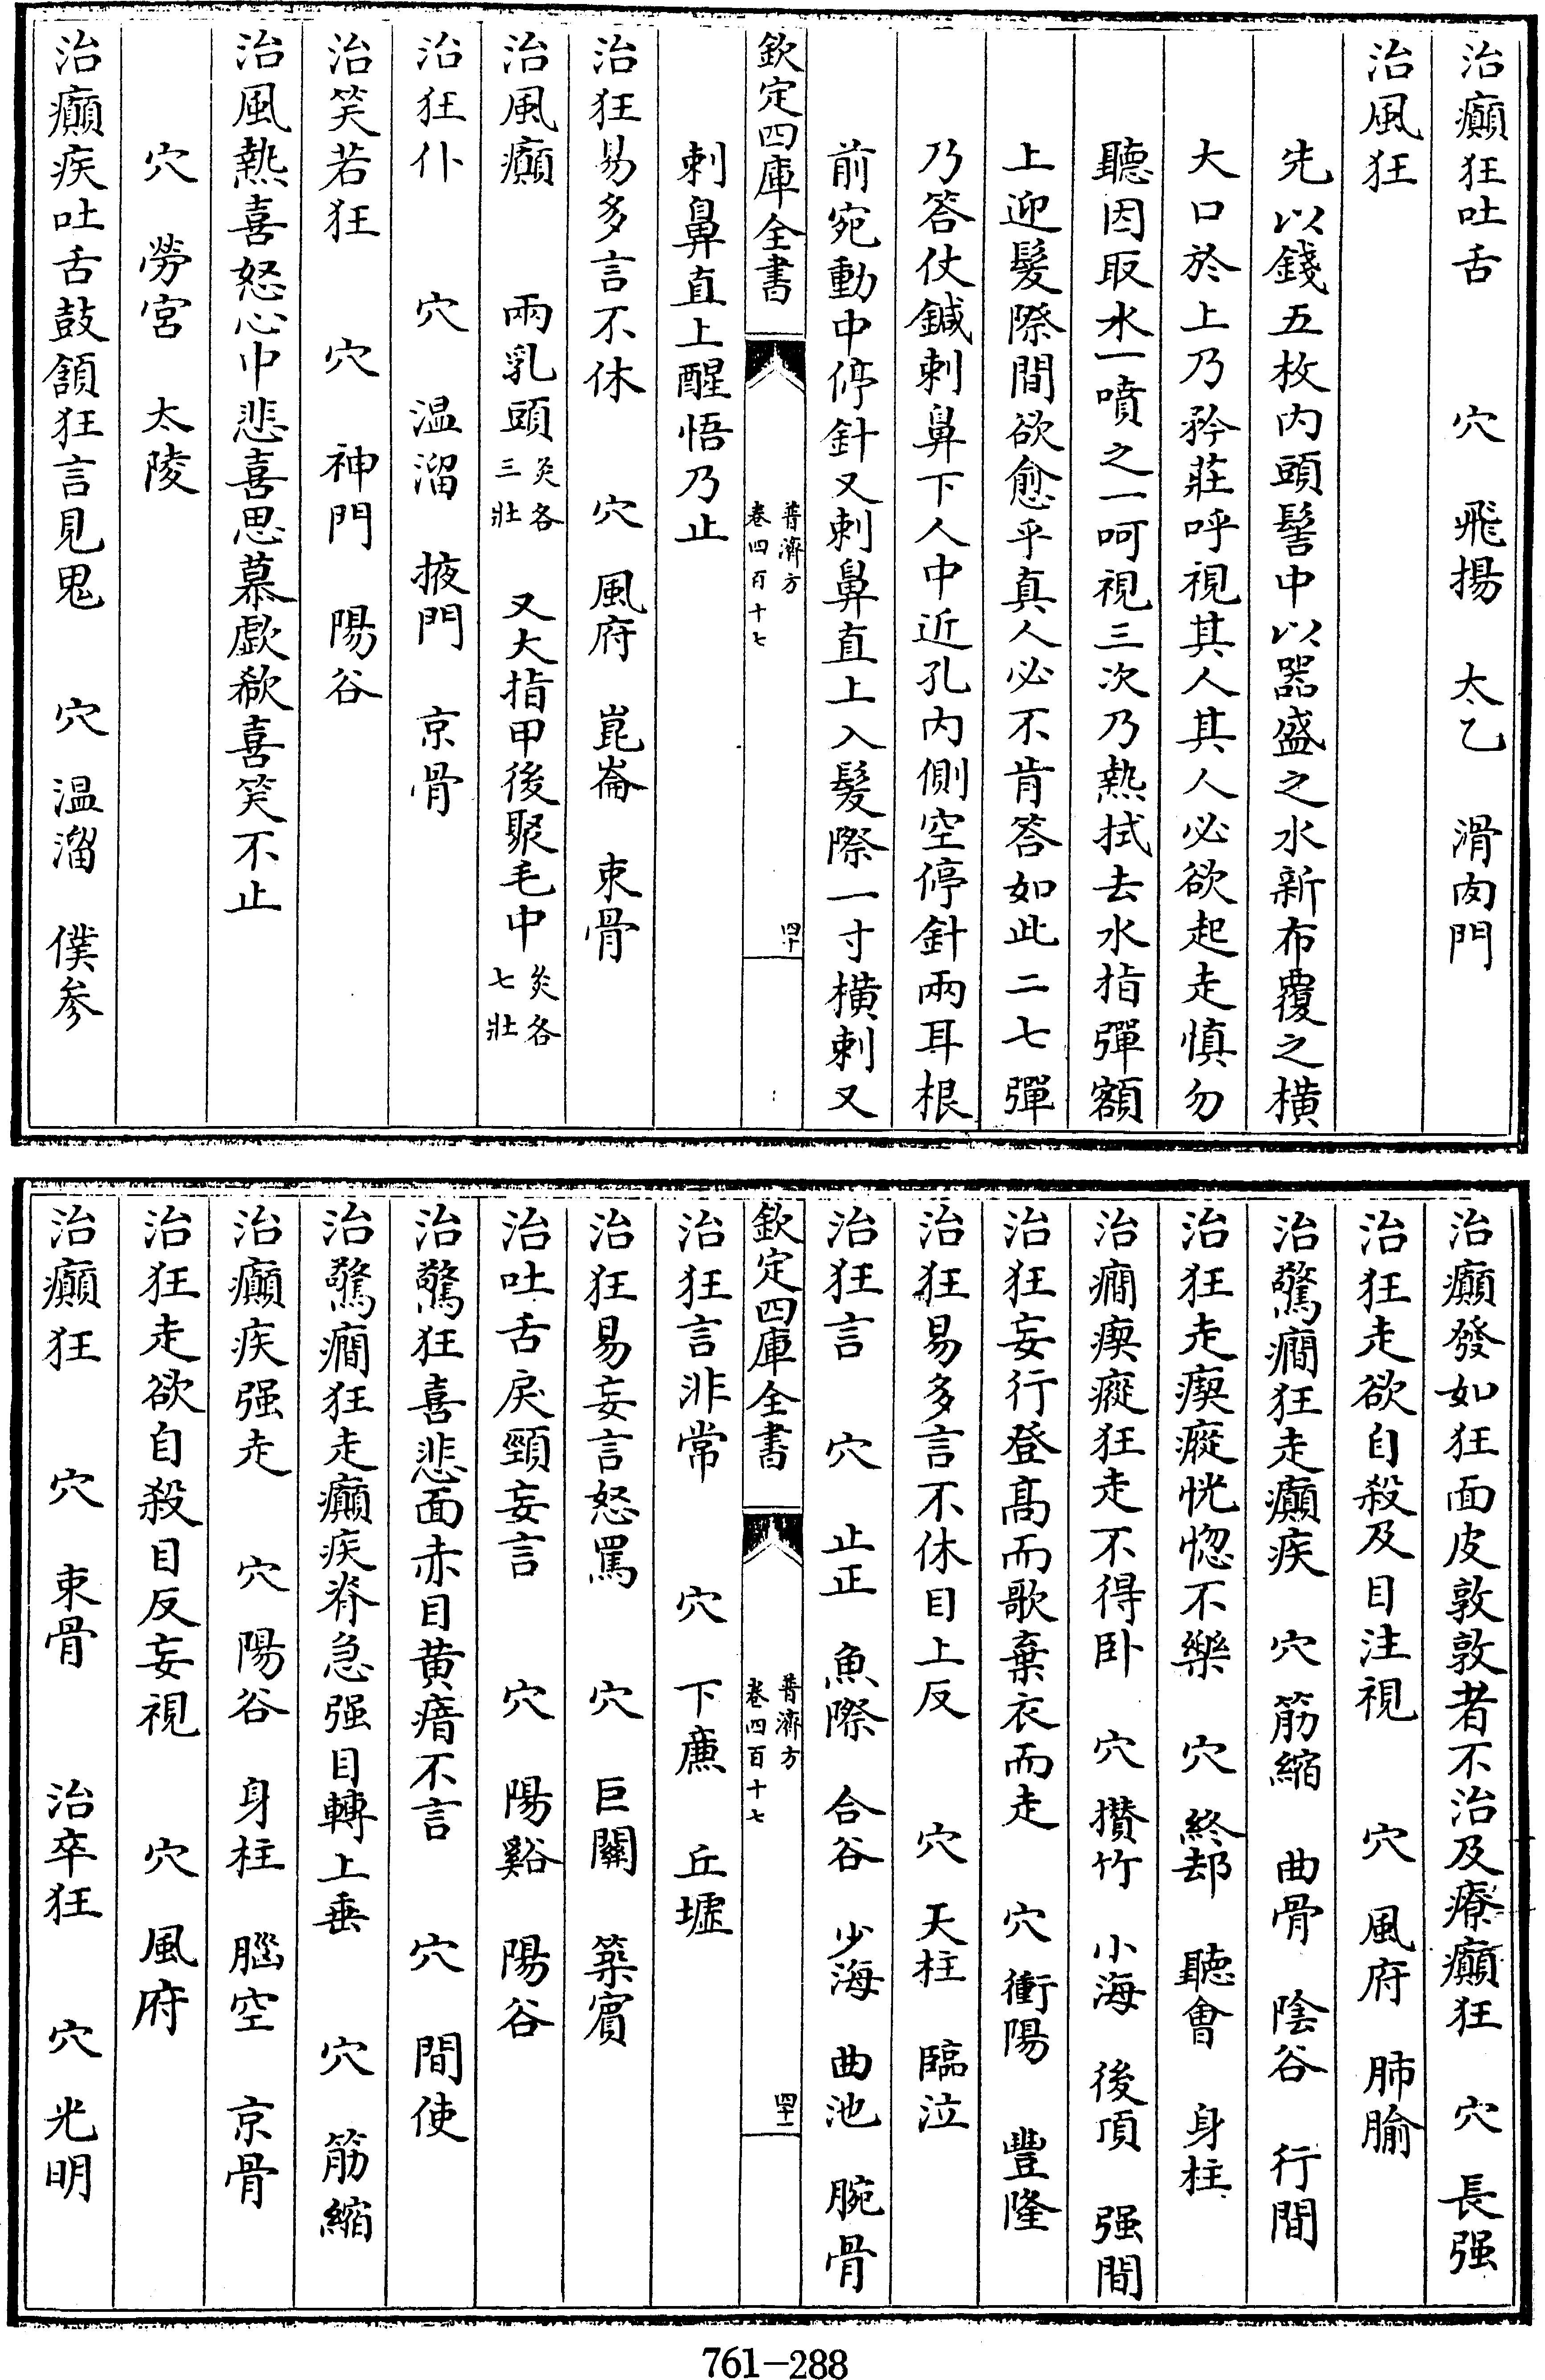 治癲狂吐舌　穴　飛揚　太乙　滑肉門
治風狂
先以錢五枚内頭髻中以器盛之水新布覆之横
大口於上乃矜莊呼視其人其人必欲起走慎勿
聽因取水一噴之一呵視三次乃熱拭去水指彈額
上迎髮際間欲愈乎真人必不肯答如此二七彈
乃答仗鍼刺鼻下人中近孔内側空停針兩耳根
前宛動中停針又刺鼻直上入髮際一寸横刺又
欽定四庫全書　普濟方卷四百十七　四十
刺鼻直上醒悟乃止
治狂易多言不休　穴　風府　崑崙　束骨
治風癲　兩乳頭灸各三壯　又大指甲後聚毛中灸各七壯
治狂仆　穴　温溜　掖門　京骨
治笑若狂　穴　神門　陽谷
治風熱喜怒心中悲喜思慕歔欷喜笑不止
穴　勞宮　太陵
治癲疾吐舌鼓頷狂言見鬼　穴　温溜　僕參
治癲發如狂面皮敦敦者不治及療癲狂　穴　長强
治狂走欲自殺及目注視　穴　風府　肺腧
治驚癇狂走癲疾　穴　筋縮　曲骨　陰谷　行間
治狂走瘈瘲恍惚不樂　穴　終郄　聽會　身柱
治癇瘈瘲狂走不得卧　穴　攢竹　小海　後頂　强間
治狂妄行登髙而歌棄衣而走　穴　衝陽　豐隆
治狂易多言不休目上反　穴　天柱　臨泣
治狂言　穴　止正　魚際　合谷　少海　曲池　腕骨
欽定四庫全書　普濟方卷四百十七　四十一
治狂言非常　穴　下廉　丘墟
治狂易妄言怒罵　穴　巨闕　築賓
治吐舌戾頸妄言　穴　陽谿　陽谷
治驚狂喜悲面赤目黄瘖不言　穴　間使
治驚癇狂走癲疾脊急强目轉上垂　穴　筋縮
治癲疾强走　穴　陽谷　身柱　腦空　京骨
治狂走欲自殺目反妄視　穴　風府
治癲狂　穴　束骨　治卒狂　穴　光明
761-288